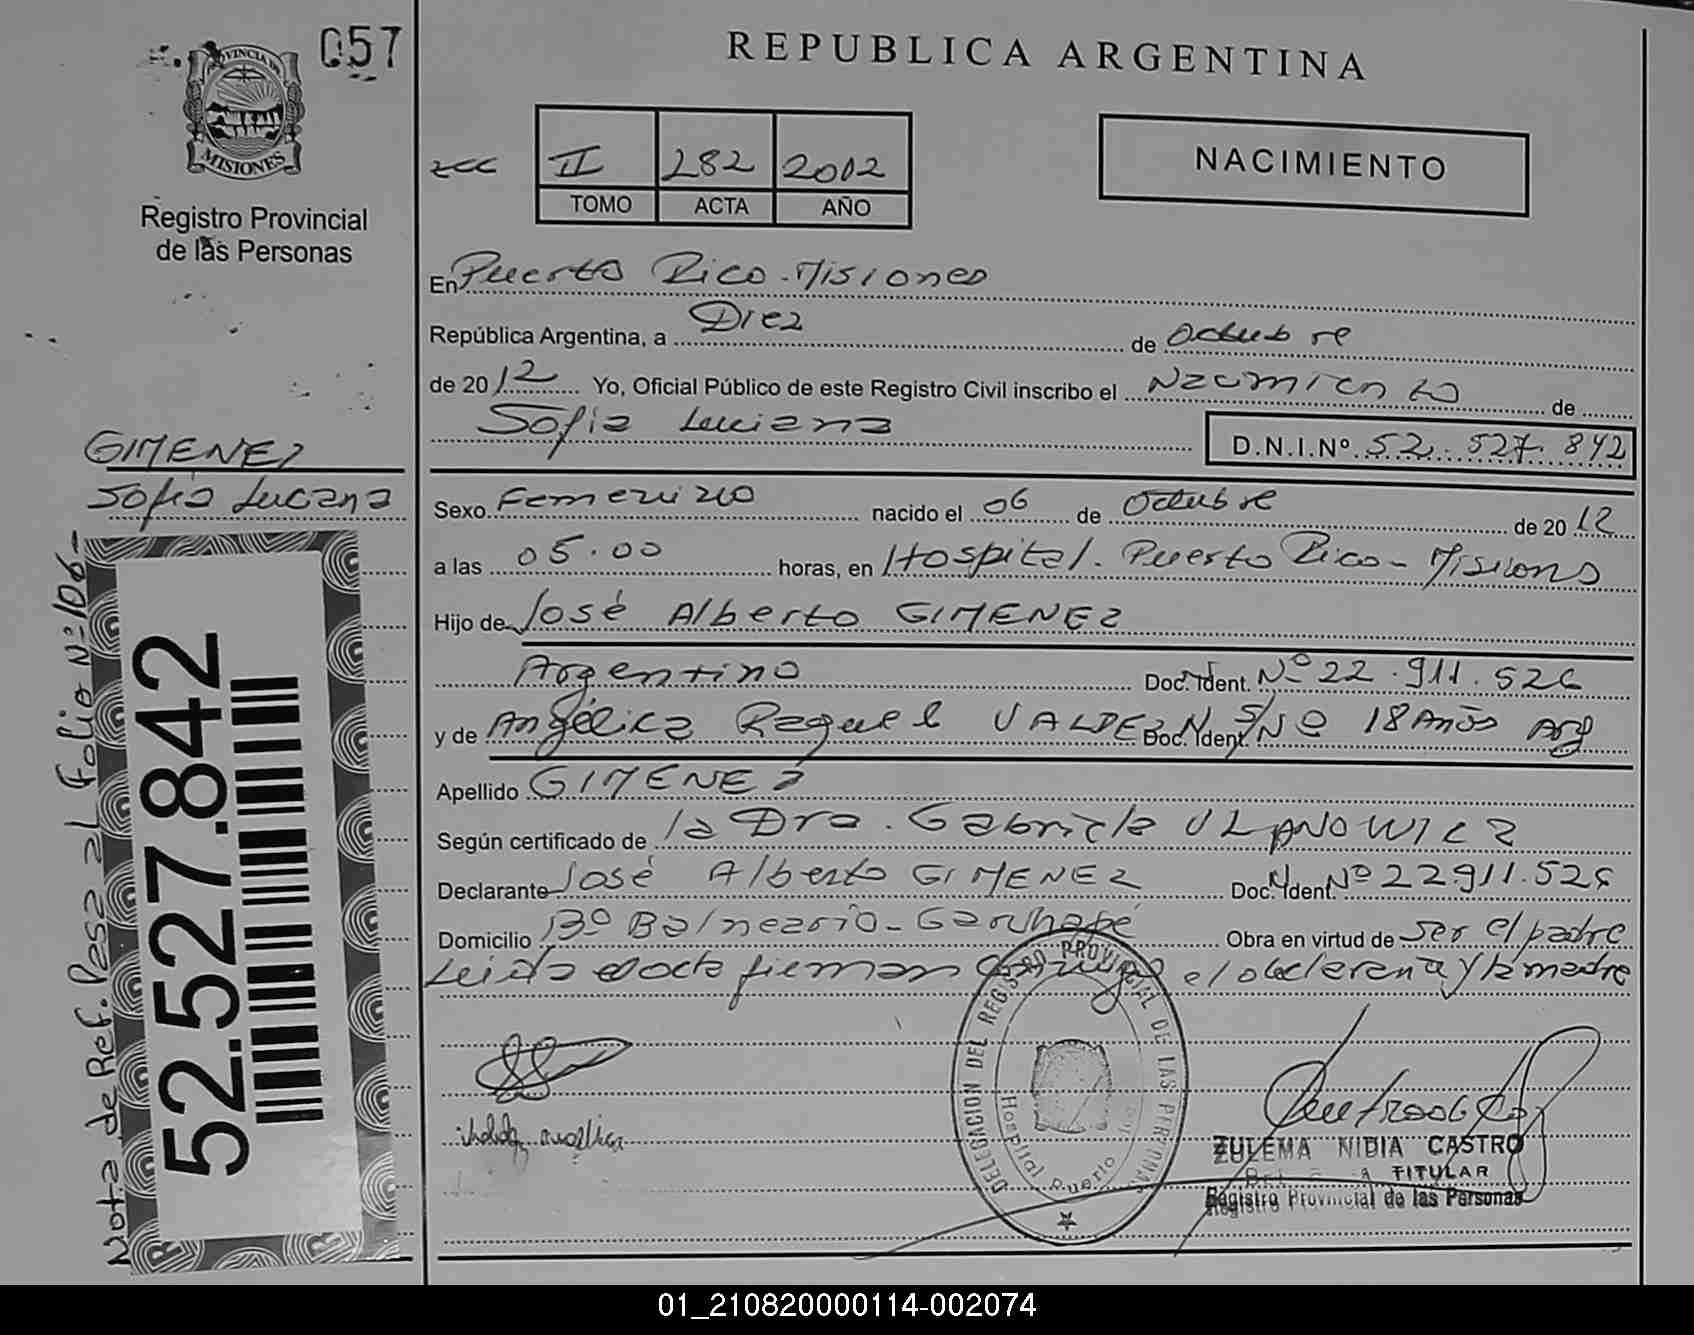 057
PROVINCIA DE
MISIONES
Registro Provincial
de las Personas
REPUBLICA ARGENTINA
II 282 2012
TOMO ACTA AÑO
NACIMIENTO
En Puerto Rico - Misiones
República Argentina, a Diez de Octubre
de 2012 Yo, Oficial Público de este Registro Civil inscribo el Nacimiento de
Sofia Luciana D.N.I.Nº 52.527.842
GIMENEZ
Sofia Luciana
Sexo Femenino nacido el 06 de Octubre de 2012
a las 05.00 horas, en Hospital. Puerto Rico - Misiones
Hijo de José Alberto GIMENEZ
Argentino Doc. Ident. Nº 22.911.526
y de Angélica Raquel VALDEZ Doc. Ident. S/Nº 18 Años Arg
Apellido GIMENEZ
Según certificado de la Dra. Gabriela ULANOWICZ
Declarante José Alberto GIMENEZ Doc. Ident. Nº 22911.526
Domicilio Bº Balneario - Garuhapé Obra en virtud de ser el padre
Leida el acta firman el declarante y la madre
Nota de Ref. Pasa al Folio Nº 106-
52.527.842
DELEGACION DEL REGISTRO PROVINCIAL DE LAS PERSONAS
Hospital Puerto
ZULEMA NIDIA CASTRO
TITULAR
Registro Provincial de las Personas
01_210820000114-002074